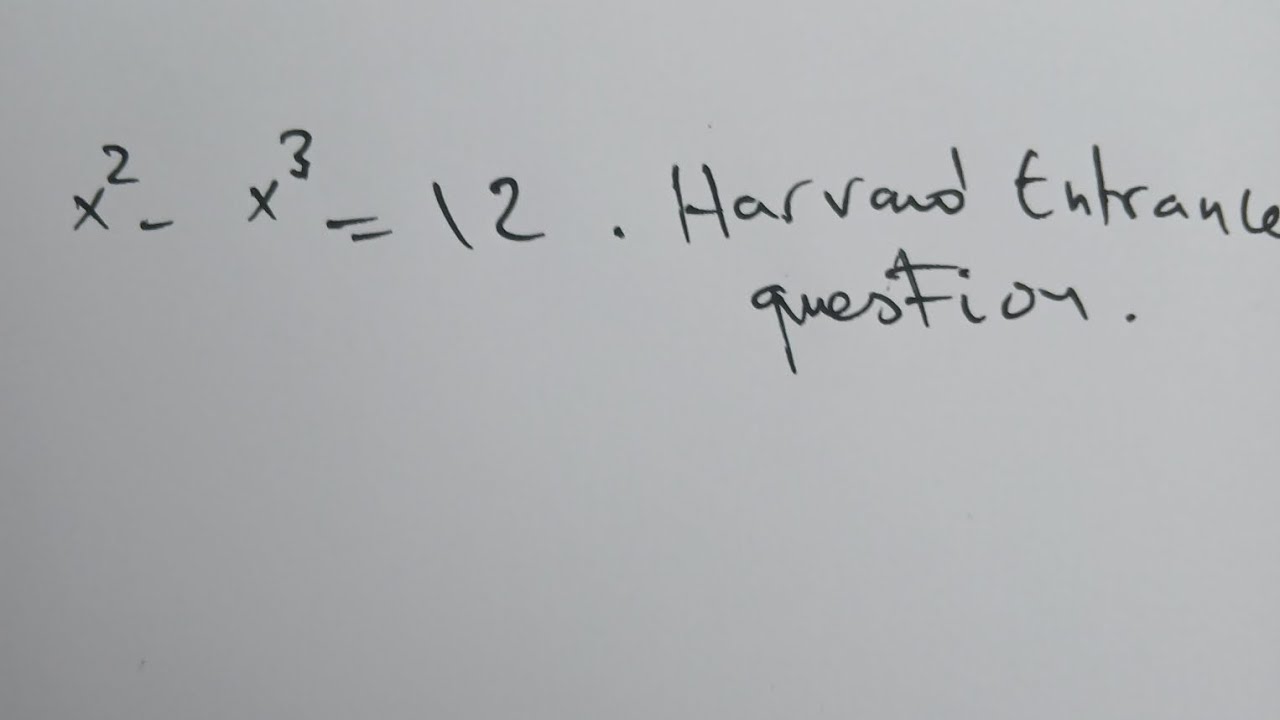 x² - x³ = 12 . Harvard Entrance
question .